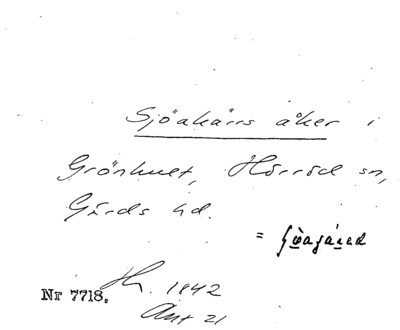 Sjöakärrs åker i
Grönhult, Hörröd sn,
Gärds hd.
=
Nr 7718. 1842
Akt 21